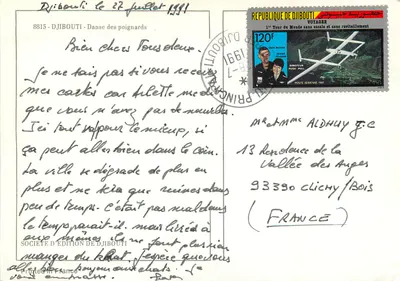 Djibouti le 27 juillet 1991
8815 - DJIBOUTI - Danse des poignards
Bien chers Tous deux !
Je ne sais pas si vous recevez
mes cartes car Arlette me dit
que vous n'avez pas de nouvelles.
Ici tout va pour le mieux, si
ça peut aller bien dans le coin.
La ville se dégrade de plus en
plus et ne sera que ruines dans
peu de temps. C'était pas mal dans
le temps paraît-il. mais livrés à
eux mêmes ils ne font plus rien
SOCIÉTÉ D'ÉDITION DE DJIBOUTI
manger du khat. J'espère que vous
REPUBLIQUE DE DJIBOUTI
VOYAGER
1er Tour du Monde sans escale et sans ravitaillement
120F
1991
DJIBOUTI
Mr et Mme ALDHUY J.C
13 Résidence de la
Vallée des Anges
93390 CLICHY/BOIS
(FRANCE)